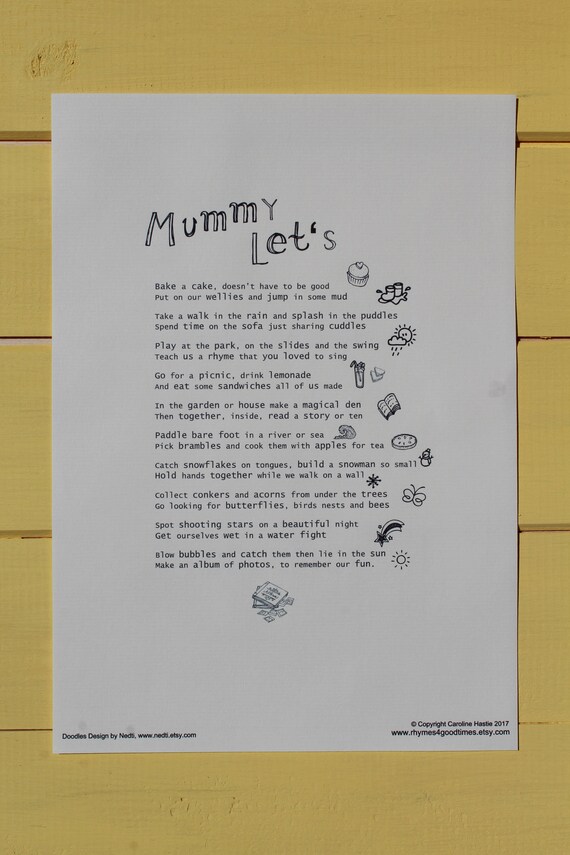 Mummy
Let's
Bake a cake, doesn't have to be good
Put on our wellies and jump in some mud
Take a walk in the rain and splash in the puddles
Spend time on the sofa just sharing cuddles
Play at the park, on the slides and the swing
Teach us a rhyme that you loved to sing
Go for a picnic, drink lemonade
And eat some sandwiches all of us made
In the garden or house make a magical den
Then together, inside, read a story or ten
Paddle bare foot in a river or sea
Pick brambles and cook them with apples for tea
Catch snowflakes on tongues, build a snowman so small
Hold hands together while we walk on a wall
Collect conkers and acorns from under the trees
Go looking for butterflies, birds nests and bees
Spot shooting stars on a beautiful night
Get ourselves wet in a water fight
Blow bubbles and catch them then lie in the sun
Make an album of photos, to remember our fun.
© Copyright Caroline Hastie 2017
Doodles Design by Nedti, www.nedti.etsy.com
www.rhymes4goodtimes.etsy.com